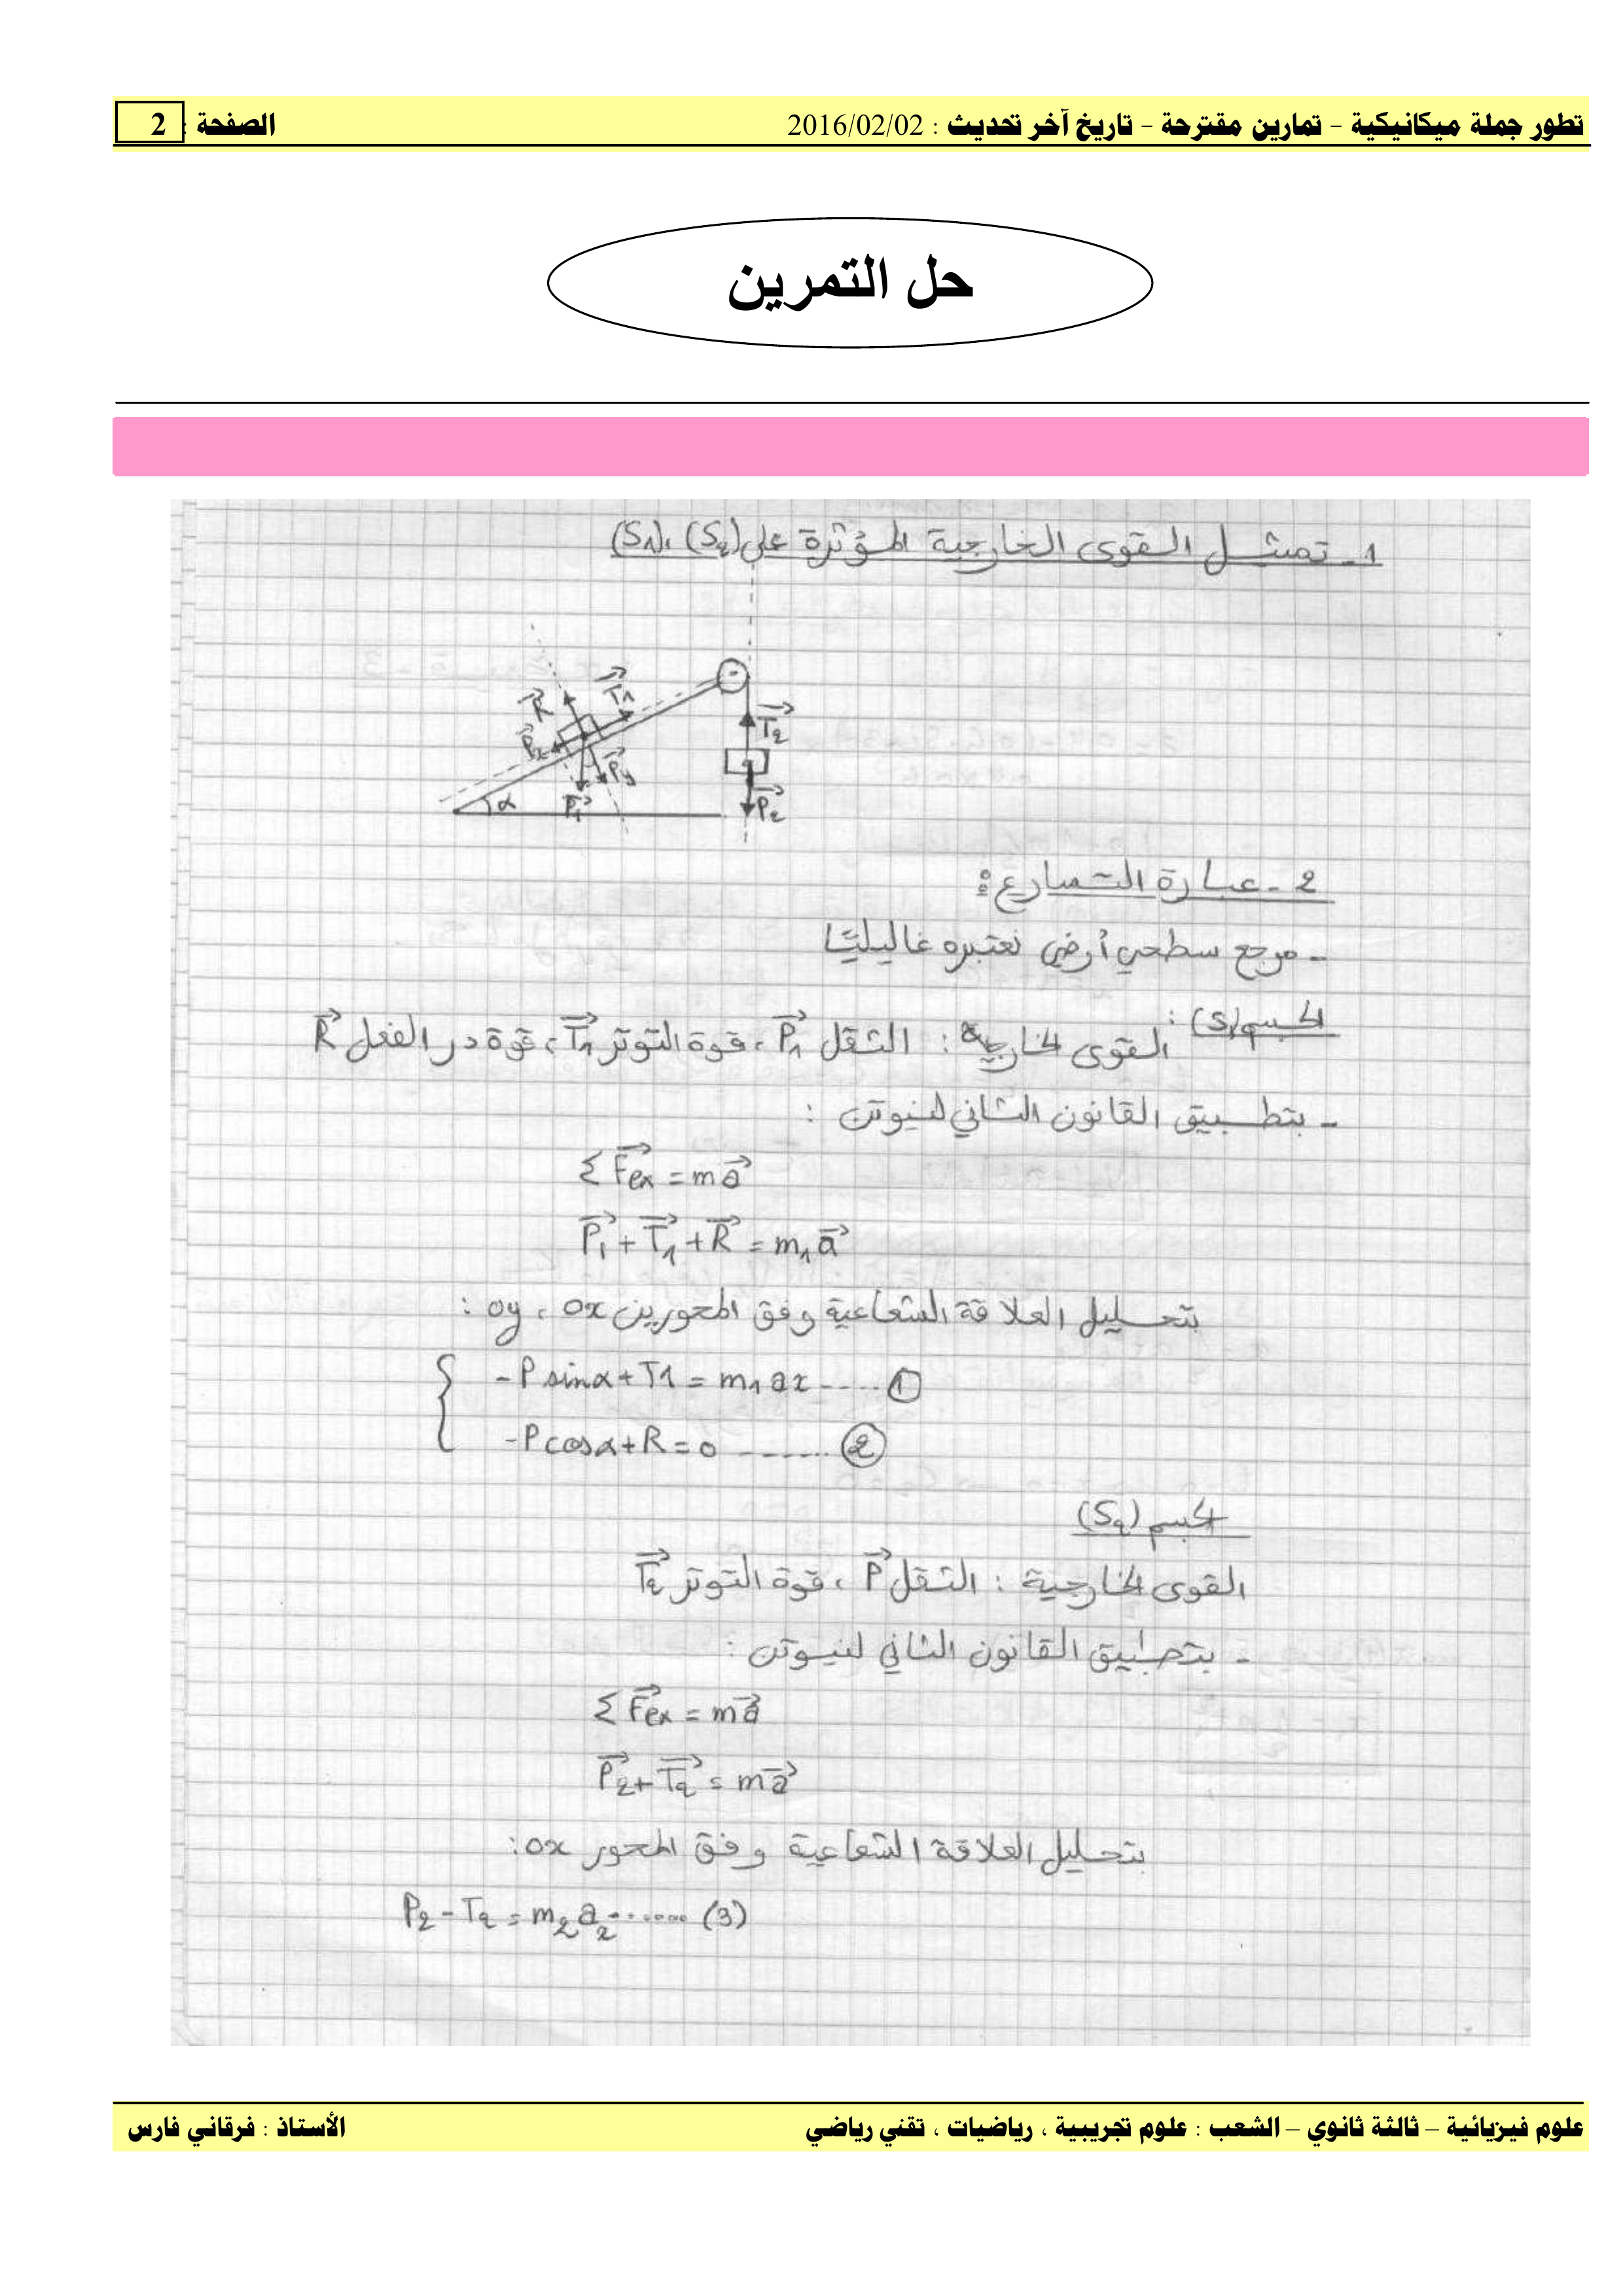 تطور جملة ميكانيكية – تمارين مقترحة – تاريخ آخر تحديث : 2016/02/02 الصفحة : 2
حل التمرين
1 - تمثيل القوى الخارجية المؤثرة على (S2)، (S1)
R T1 Px Py P1 α
T2 P2
2 - عبارة التسارع :
- مرجع سطحي أرضي نعتبره غاليليًا
الجسم (S1) : القوى الخارجية : الثقل P1 ، قوة التوتر T1 ، قوة رد الفعل R
- بتطبيق القانون الثاني لنيوتن :
Σ Fex = m a
P1 + T1 + R = m1 a
بتحليل العلاقة الشعاعية وفق المحورين ox ، oy :
- P sinα + T1 = m1 ax ----- 1
- P cosα + R = 0 ------- 2
الجسم (S2)
القوى الخارجية : الثقل P ، قوة التوتر T2
- بتطبيق القانون الثاني لنيوتن :
Σ Fex = m a
P2 + T2 = m a
بتحليل العلاقة الشعاعية وفق المحور ox :
P2 - T2 = m2 a2 ....... (3)
علوم فيزيائية – ثالثة ثانوي – الشعب : علوم تجريبية ، رياضيات ، تقني رياضي الأستاذ : فرقاني فارس